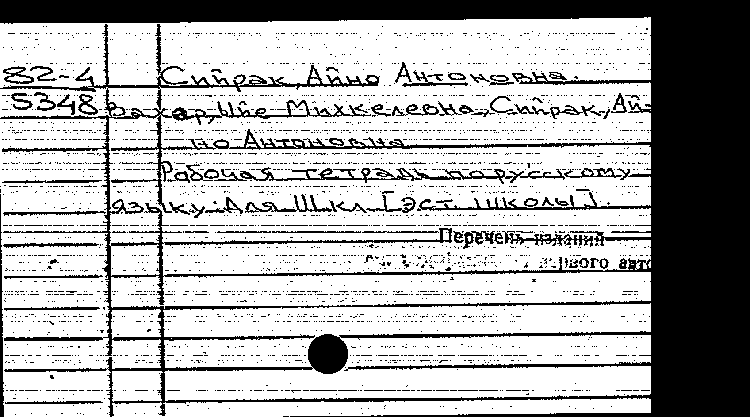 82-4 Сийрак, Айно Антоновна.
5348 Вахар, Ыйе Михкелевна, Сийрак, Ай-
но Антоновна
Рабочая тетрадь по русскому
языку: Для III кл. [эст. школы].
Перечень изданий
первого авто